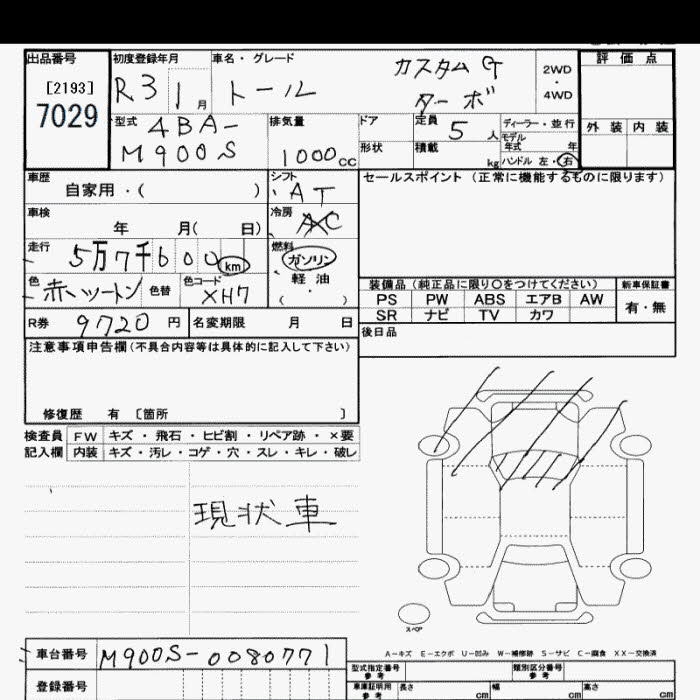 出品番号 初度登録年月 車名・グレード 評価点
[2193]
7029
R3 1月 トール カスタムG ターボ 2WD・4WD
型式 4BA-M900S 排気量 1000cc
ドア 定員 5人 ディーラー・並行
形状 積載 kg モデル年式 年
ハンドル 左・右
外装 内装
車歴 自家用・( ) シフト AT
セールスポイント (正常に機能するものに限ります)
車検 年 月( 日) 冷房 AC
走行 5万7千600km 燃料 ガソリン
軽油
・( )
色 赤いツートン 色替 色コード XH7
装備品(純正品に限り○をつけてください) 新車保証書
PS PW ABS エアB AW 有・無
SR ナビ TV カワ
R券 9720円 名変期限 月 日
後日品
注意事項申告欄(不具合内容等は具体的に記入して下さい)
修復歴 有 〔箇所 〕
検査員 FW キズ・飛石・ヒビ割・リペア跡・×要
記入欄 内装 キズ・汚レ・コゲ・穴・スレ・キレ・破レ
現状車
スペア
A-キズ E-エクボ U-凹み W-補修跡 S-サビ C-腐食 XX-交換済
車台番号 M900S-0080771
型式指定番号 参考 類別区分番号 参考
登録番号
車庫証明用 参考 長さ cm 幅 cm 高さ cm